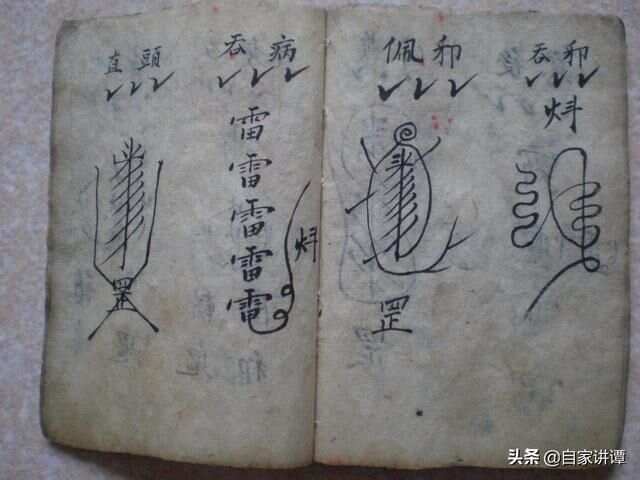 頭
吞病
佩邪
吞邪
雷
雷
雷
雷
電
炓
罡
罡
炓
头条 @自家讲谭